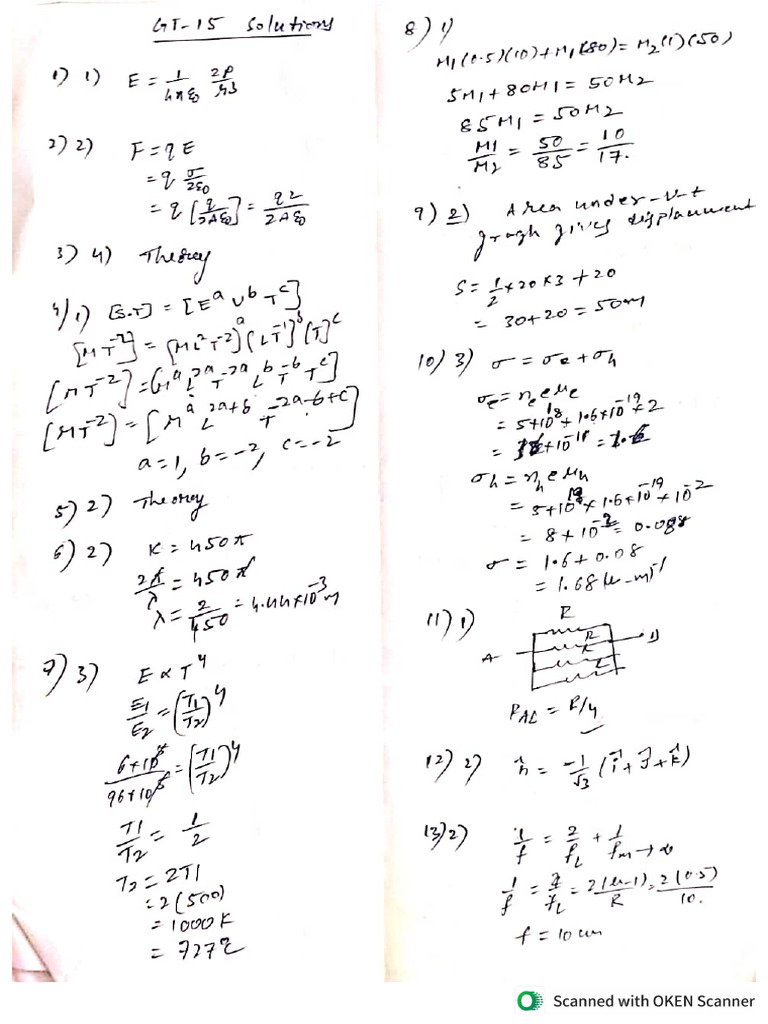 GT-15 Solutions
1) 1) E = 1/4πε₀ 2P/r³
2) 2) F = qE
= q σ/2ε₀
= q [q/2Aε₀] = q2/2Aε₀
3) 4) Theory
4) 1) [S.T] = [E^a V^b T^c]
[MT^-2] = [ML^2T^-2]^a (LT^-1)^b (T)^c
[MT^-2] = [M^a L^2a T^-2a L^b T^-b T^c]
[MT^-2] = [M^a L^2a+b T^-2a-b+c]
a=1, b=-2, c=-2
5) 2) Theory
6) 2) K = 450π
2π/λ = 450π
λ = 2/450 = 4.44×10^-3 m
7) 3) E ∝ T^4
E1/E2 = (T1/T2)^4
= (T1/T2)^4
T1/T2 = 1/2
T2 = 2T1
= 2(500)
= 1000K
= 727
8) 1)
M1(0.5)(10)+M1(80) = M2(1)(50)
5M1 + 80M1 = 50M2
85M1 = 50M2
M1/M2 = 50/85 = 10/17.
9) 2) Area under v-t
graph gives displacement
S = 1/2 × 20 × 3 + 20
= 30+20 = 50m
10) 3) σ = σe + σh
σe = ne e μe
= 5×10^18 × 1.6×10^-19 × 2
σh = nh e μh
= 5×10^19 × 1.6×10^-19 × 10^-2
σ = 1.6 + 0.08
= 1.68
11) 1)
R
A R B
R
= R/4
12) 2) n̂ = -1/√3 (î + ĵ + k̂)
13) 2) 1/f = 2/fL + 1/fm → ∞
1/f = 2/fL = 2(μ-1)/R = 2(0.5)/10.
f = 10 cm
Scanned with OKEN Scanner